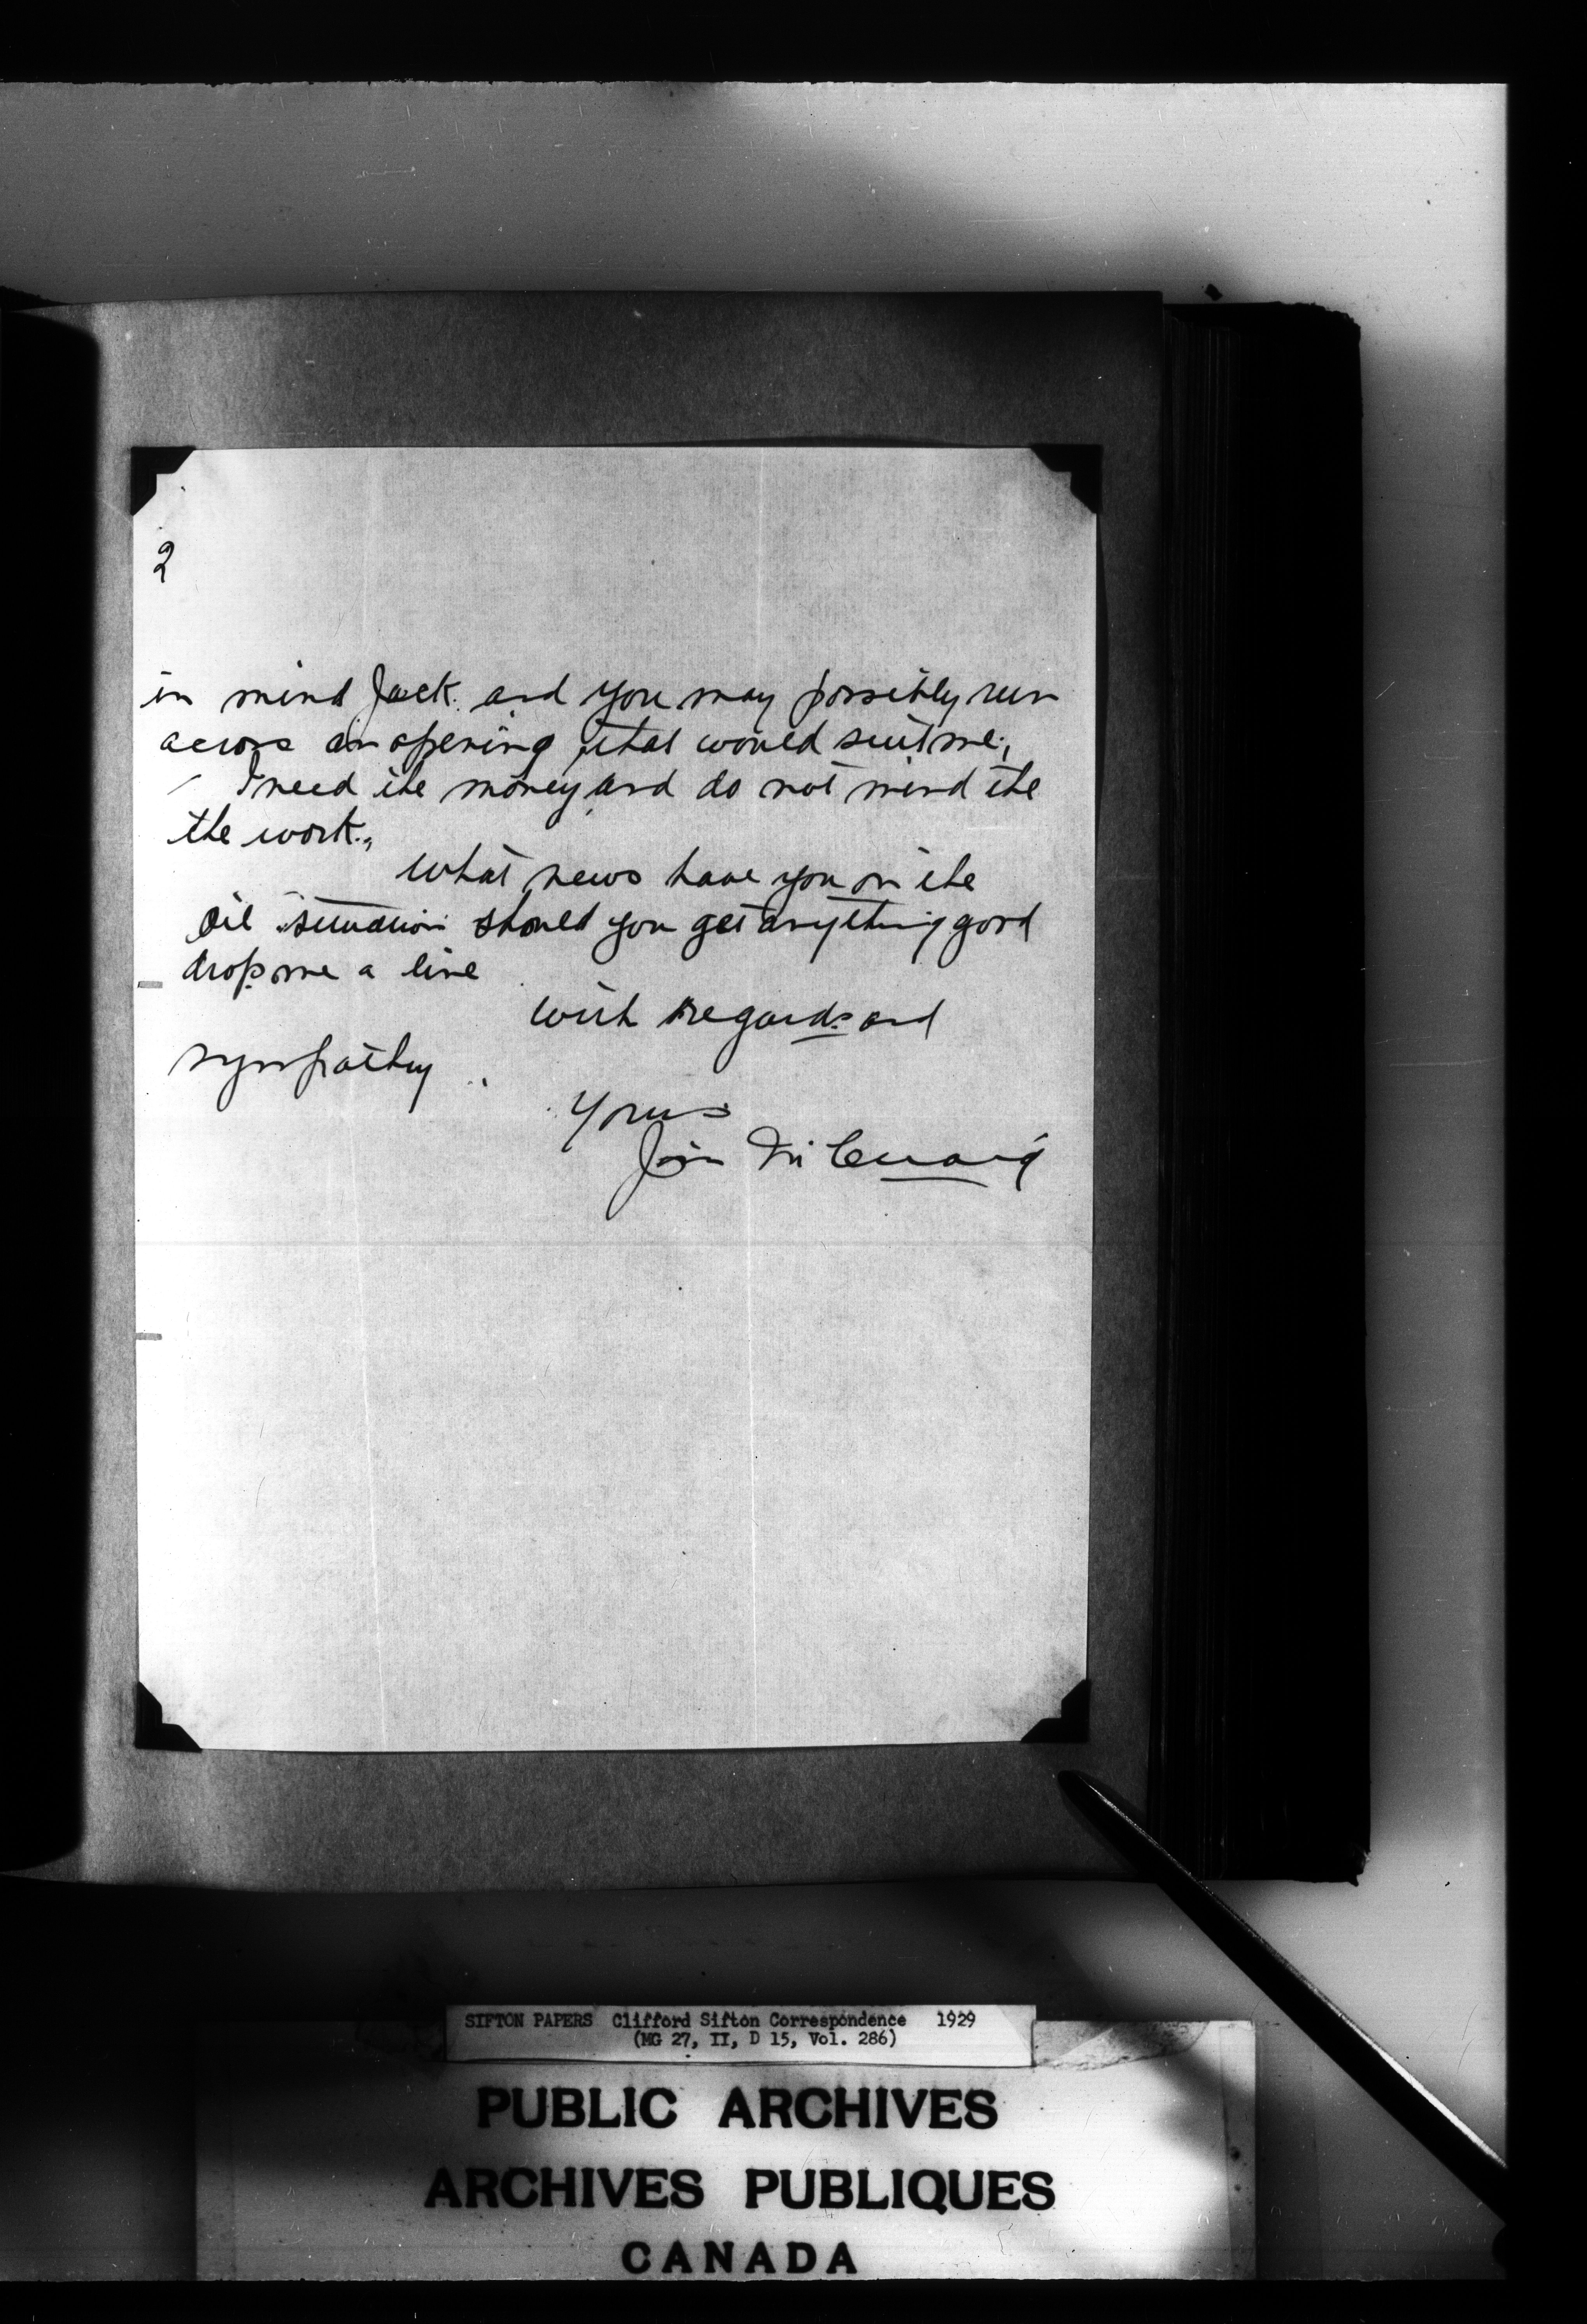 2
in mind Jack. and you may possibly run
across an opening that would suit me,
I need the money and do not mind the
the work.
What news have you on the
Oil situation should you get anything good
drop me a line
With regards and
sympathy.
Yours
Jim
SIFTON PAPERS Clifford Sifton Correspondence 1929
(MG 27, II, D 15, Vol. 286)
PUBLIC ARCHIVES
ARCHIVES PUBLIQUES
CANADA